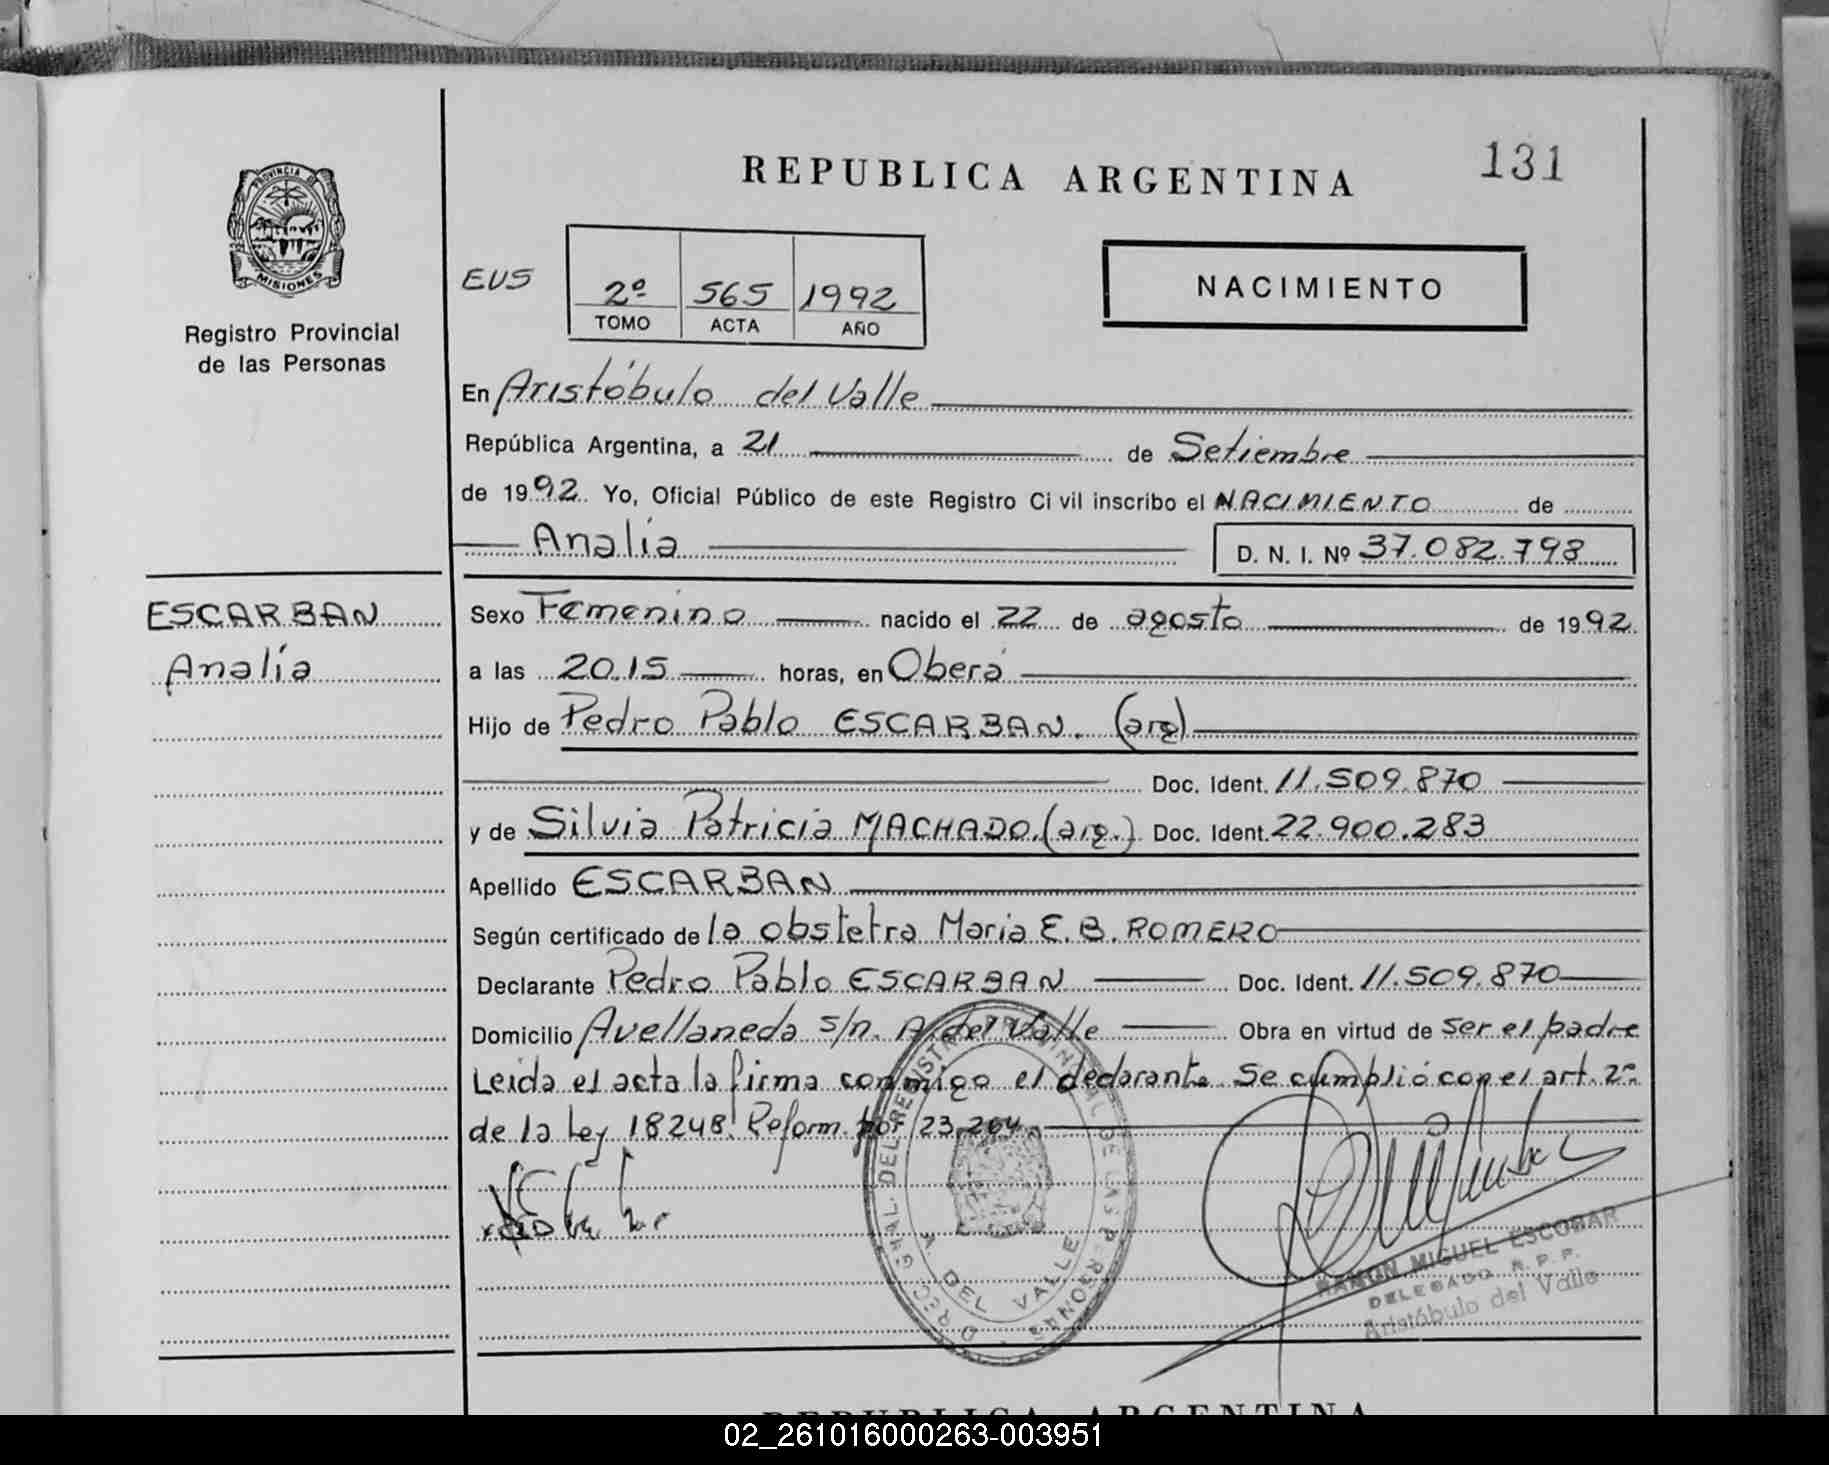 REPUBLICA ARGENTINA
131
PROVINCIA DE
MISIONES
Registro Provincial
de las Personas
EUS
2º 565 1992
TOMO ACTA AÑO
NACIMIENTO
En Aristóbulo del Valle
República Argentina, a 21 de Setiembre
de 1992. Yo, Oficial Público de este Registro Civil inscribo el NACIMIENTO de
Analía D. N. I. Nº 37.082.798
ESCARBAN
Analía
Sexo Femenino nacido el 22 de agosto de 1992.
a las 20.15 horas, en Oberá
Hijo de Pedro Pablo ESCARBAN. (arg)
Doc. Ident. 11.509.870
y de Silvia Patricia MACHADO. (arg.) Doc. Ident. 22.900.283
Apellido ESCARBAN
Según certificado de la obstetra Maria E. B. ROMERO
Declarante Pedro Pablo ESCARBAN Doc. Ident. 11.509.870
Domicilio Avellaneda s/n. A. del Valle Obra en virtud de ser el padre
Leida el acta la firma conmigo el declarante. Se cumplió con el art. 2º
de la Ley 18248. Reform. por 23.264.
A. DEL VALLE
RAMON MIGUEL ESCOBAR
DELEGADO R. P. P.
Aristóbulo del Valle
REPUBLICA ARGENTINA
02_261016000263-003951